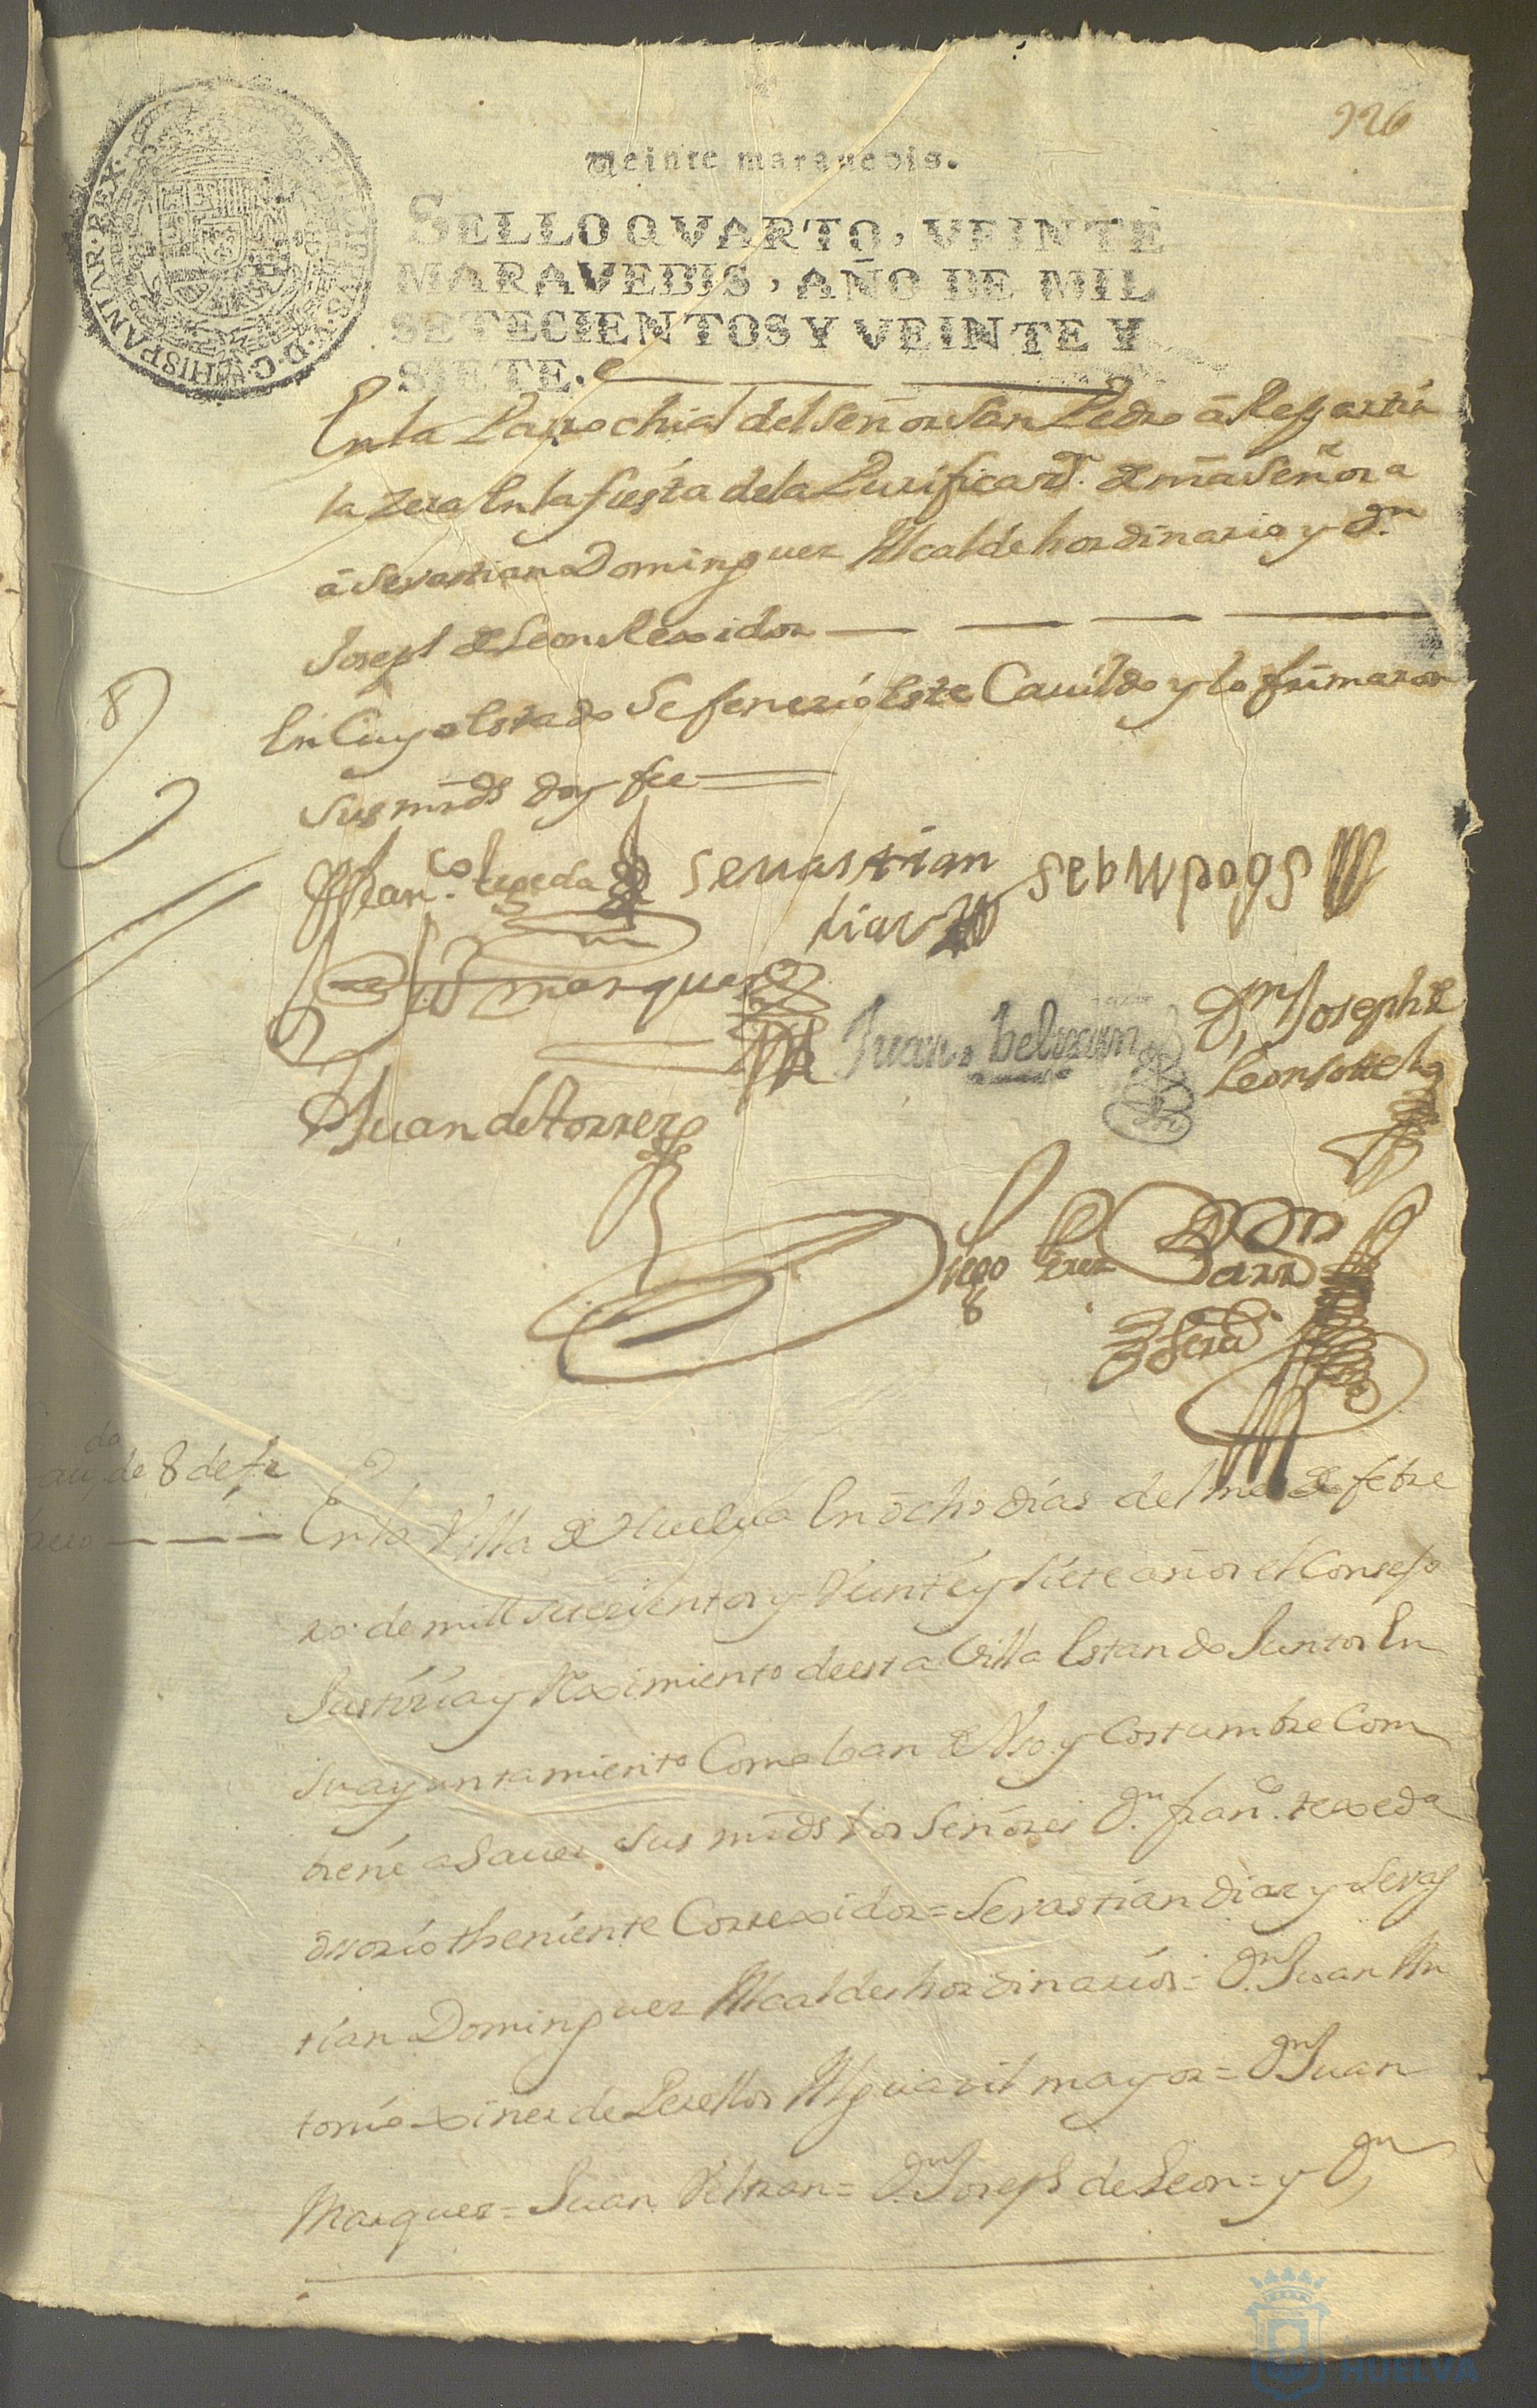 926
Veinte maravedis.
SELLO QVARTO, VEINTE
MARAVEDIS, AÑO DE MIL
SETECIENTOS Y VEINTE Y
SIETE.
HISPANIAR. REX
D. G.
En la Parrochial del Señor San Pedro â Repartir
la zera En la fiesta de la Purificaᵒⁿ. de nr̃a Señora
â Sevastian Dominguez Alcalde hordinario y Dⁿ.
Joseph de Leon Rexidor
En Cuyo Estado Se fenezió Este Cauildo y lo firmaron
Sus mr̃ds doy fee
Franᶜᵒ. texeda
Sevastian
diaz
Juᵒ marquez
Juan beltran
Dⁿ. Joseph de
Leon sottelo
Juan de torres
Diego Perez
8
da
Cauᵈᵒ de 8 de fe
brero
En la Villa de Huelva En ôcho dias del mes de febre
ro de mill setezientos y Veinte y Siete años el Consejo
Justizia y Reximiento de esta Villa Estando Juntos En
su ayuntamiento Como lo an de Vso y Costumbre Com
biene a Sauer Sus mr̃ds los Señores Dⁿ. franᶜᵒ. texeda
theniente Correxidor = Sevastian diaz y Sevas
tian Dominguez Alcaldes hordinarios = Dⁿ. Juan An
tonio Ximez de Perellos Alguazil mayor = Dⁿ Juan
Marquez = Juan Veltran = Dⁿ. Joseph de Leon = y Dⁿ
HUELVA